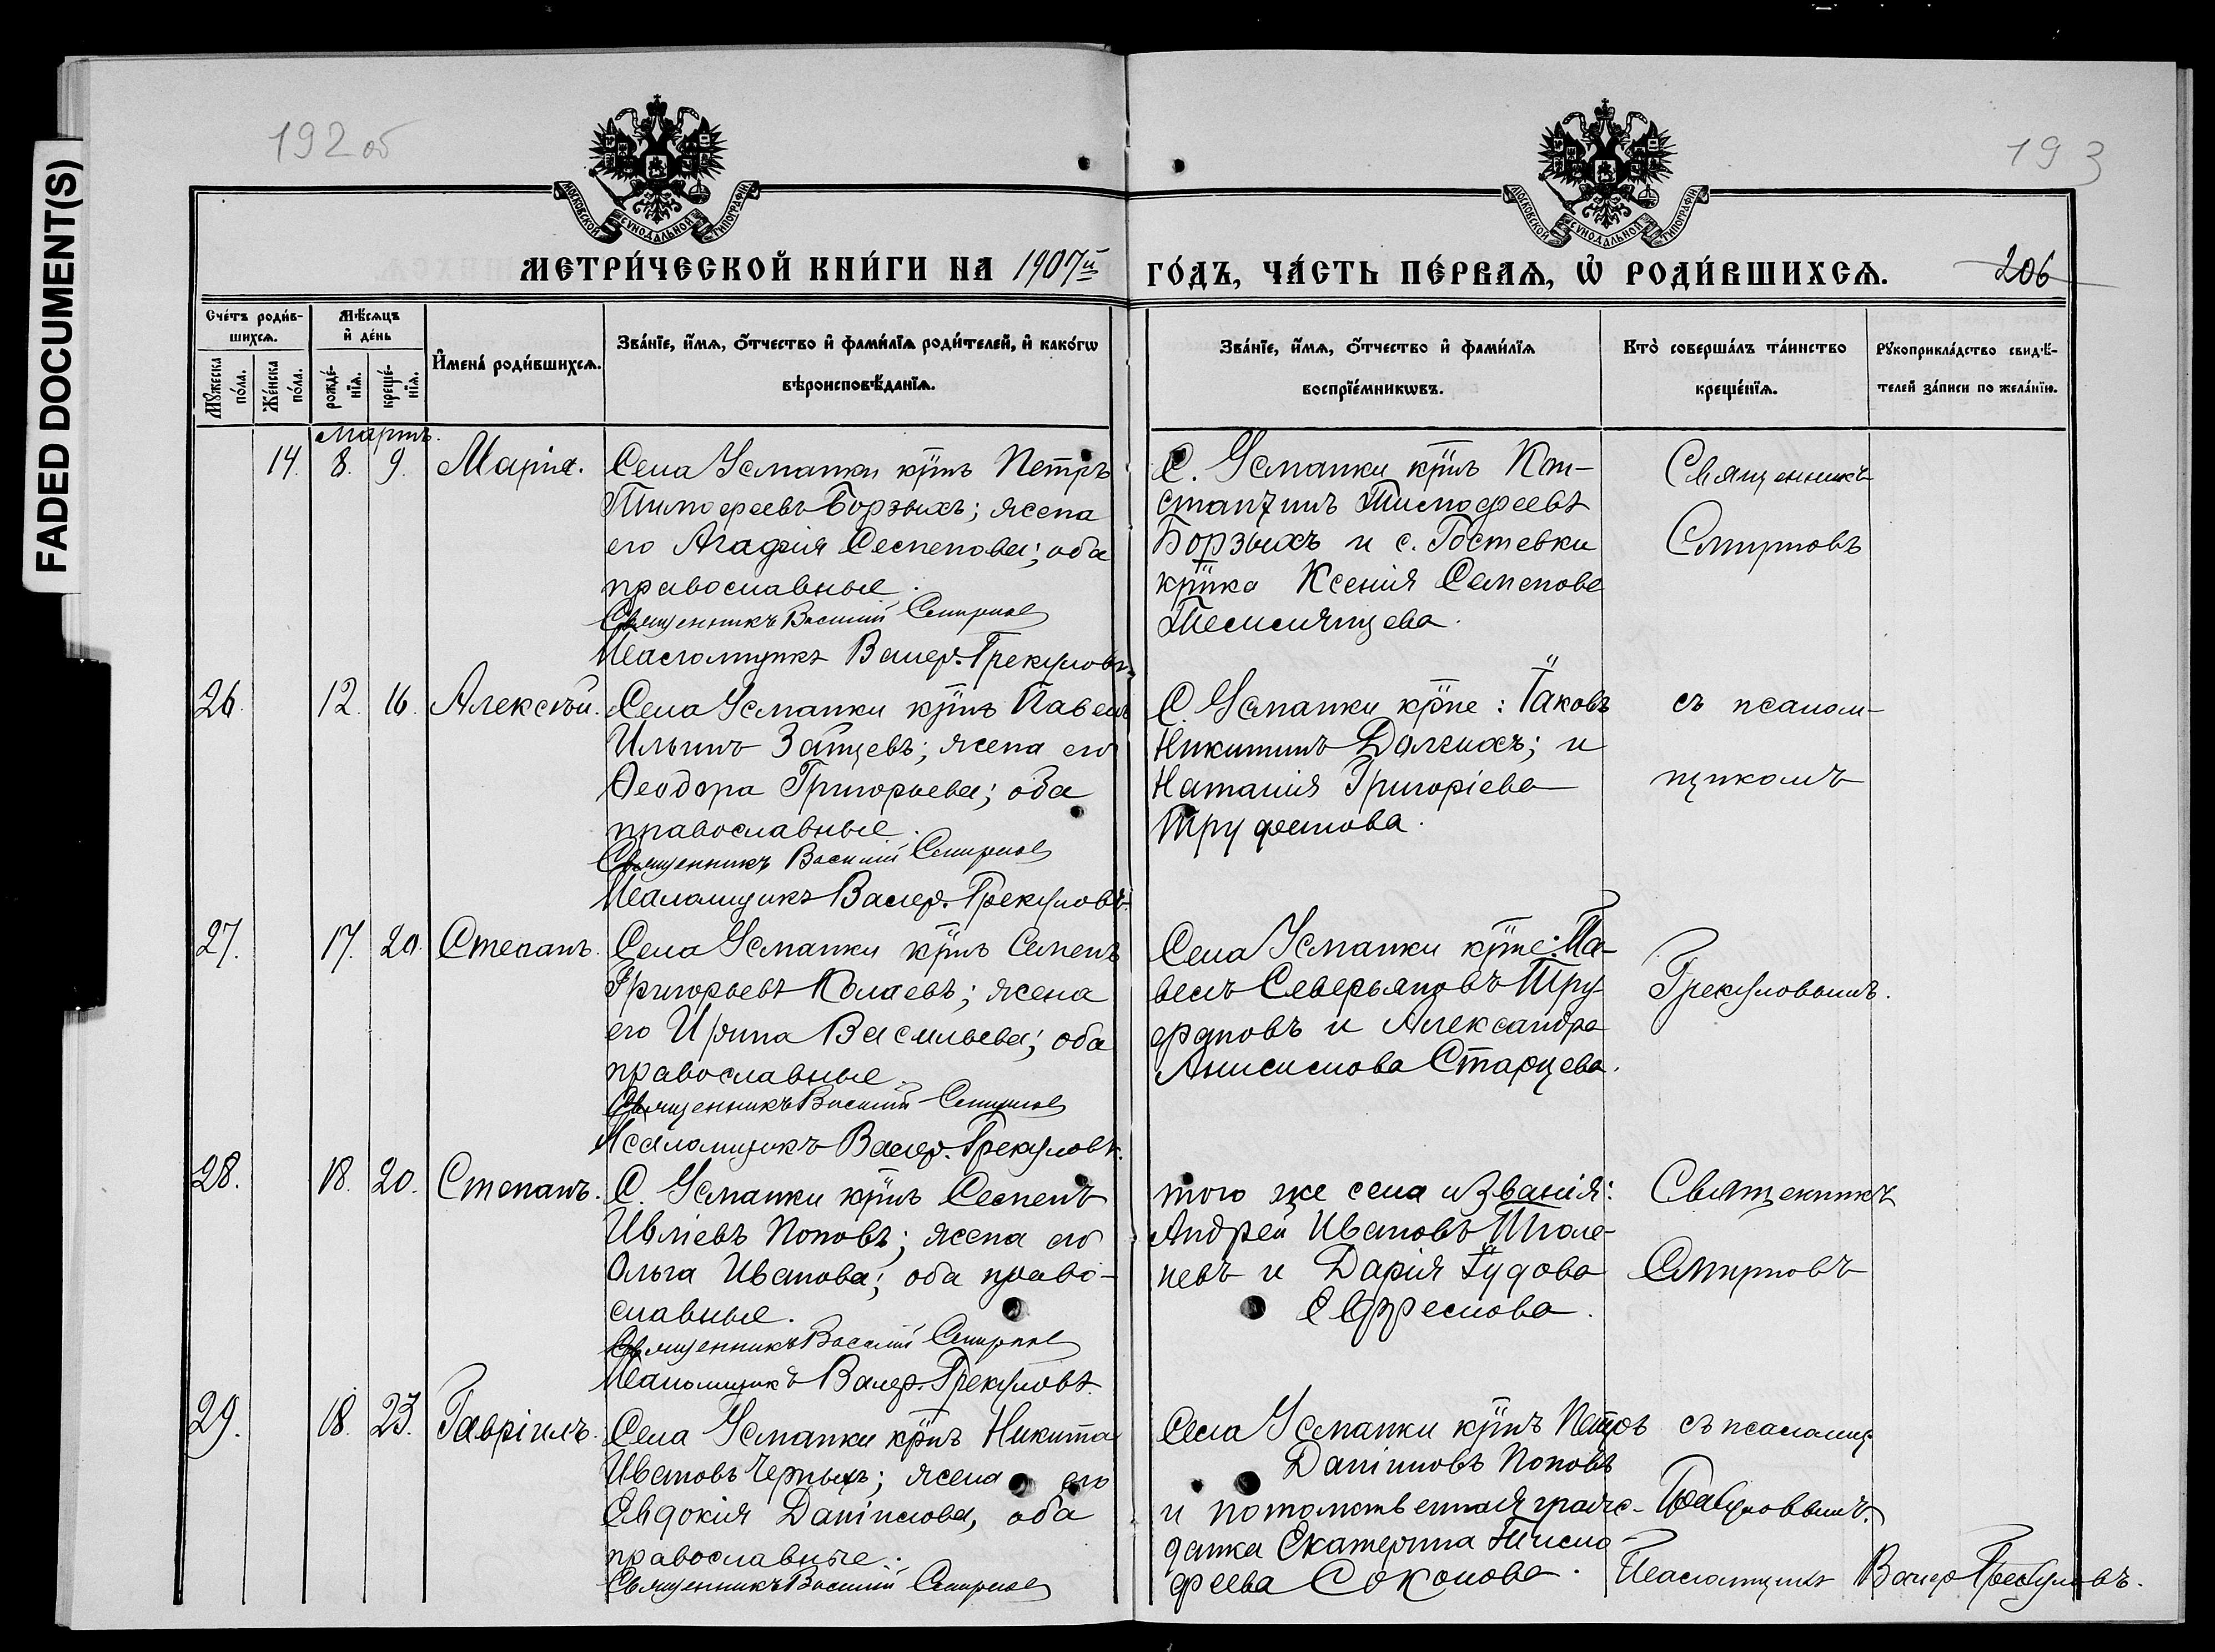 FADED DOCUMENT(S)
192 об
193
МОСКОВСКОЙ СѴНОДАЛЬНОЙ ТИПОГРАФІИ
МОСКОВСКОЙ СѴНОДАЛЬНОЙ ТИПОГРАФІИ
МЕТРИ́ЧЕСКОЙ КНИ́ГИ НА 1907й
ГО́ДЪ, ЧА́СТЬ ПЕ́РВАѦ, Ѡ҆ РОДИ́ВШИХСѦ.
206
Сче́тъ роди́в-
шихсѧ.
Мꙋ́жеска
по́ла.
Же́нска
по́ла.
Мѣ́сѧцъ
и҆ де́нь
рожде́-
нїѧ.
креще́-
нїѧ.
И҆мена̀ роди́вшихсѧ.
Зва́нїе, и҆́мѧ, ѻ҆́тчество и҆ фами́лїѧ роди́телей, и҆ како́гѡ
вѣроисповѣ́данїѧ.
Зва́нїе, и҆́мѧ, ѻ҆́тчество и҆ фами́лїѧ
воспрїе́мникѡвъ.
Кто̀ соверша́лъ та́инство
креще́нїѧ.
Рꙋкоприкла́дство свидѣ́-
телей за́писи по жела́нїю.
Мартъ.
14. 8. 9. Марія.
Села Усманки кр͠нъ Петръ
Тимофеевъ Борзыхъ; жена
его Агафия Семенова; оба
православные.
Священникъ Василий Смирнов
Псаломщикъ Валер. Грекуловъ
С. Усманки кр͠нъ Кон-
стантинъ Тимофеевъ
Борзыхъ и с. Гостевки
кр͠нка Ксенія Семенова
Священникъ
Смирновъ
26. 12. 16. Алексѣй.
Села Усманки кр͠нъ Павелъ
Ильинъ Зайцевъ; жена его
Ѳеодора Григорьева; оба
православные.
Священникъ Василий Смирнов
Псаломщикъ Валер. Грекуловъ.
С. Усманки кр͠не: Іаковъ
Никитинъ Долгихъ; и
Наталія Григоріева
Труфанова.
съ псалом-
щикомъ
27. 17. 20. Степанъ.
Села Усманки кр͠нъ Семенъ
Григорьевъ Колаевъ; жена
его Ирина Васильева; оба
православные.
Священникъ Василий Смирнов
Псаломщикъ Валер. Грекуловъ.
Села Усманки кр͠не: Па-
велъ Северьяновъ Тру-
фановъ и Александра
Анисимова Старцева.
Грекуловымъ.
28. 18. 20. Степанъ.
С. Усманки кр͠нъ Семенъ
Ивліевъ Поповъ; жена его
Ольга Иванова; оба право-
славные.
Священникъ Василий Смирнов
Псаломщикъ Валер. Грекуловъ.
того же села и званія:
Андрей Ивановъ
и Дарія Іудова
Ефремова.
Священникъ
Смирновъ
29. 18. 23. Гавріилъ.
Села Усманки кр͠нъ Никита
Ивановъ Черныхъ; жена его
Евдокія Даніилова, оба
православные.
Священникъ Василий Смирнов
Села Усманки кр͠нъ Петръ
Даніиловъ Поповъ
и потомственная граж-
данка Екатерина Тимо-
феева Соколова.
съ псаломщ.
Грекуловымъ.
Псаломщикъ Валер Грекуловъ.